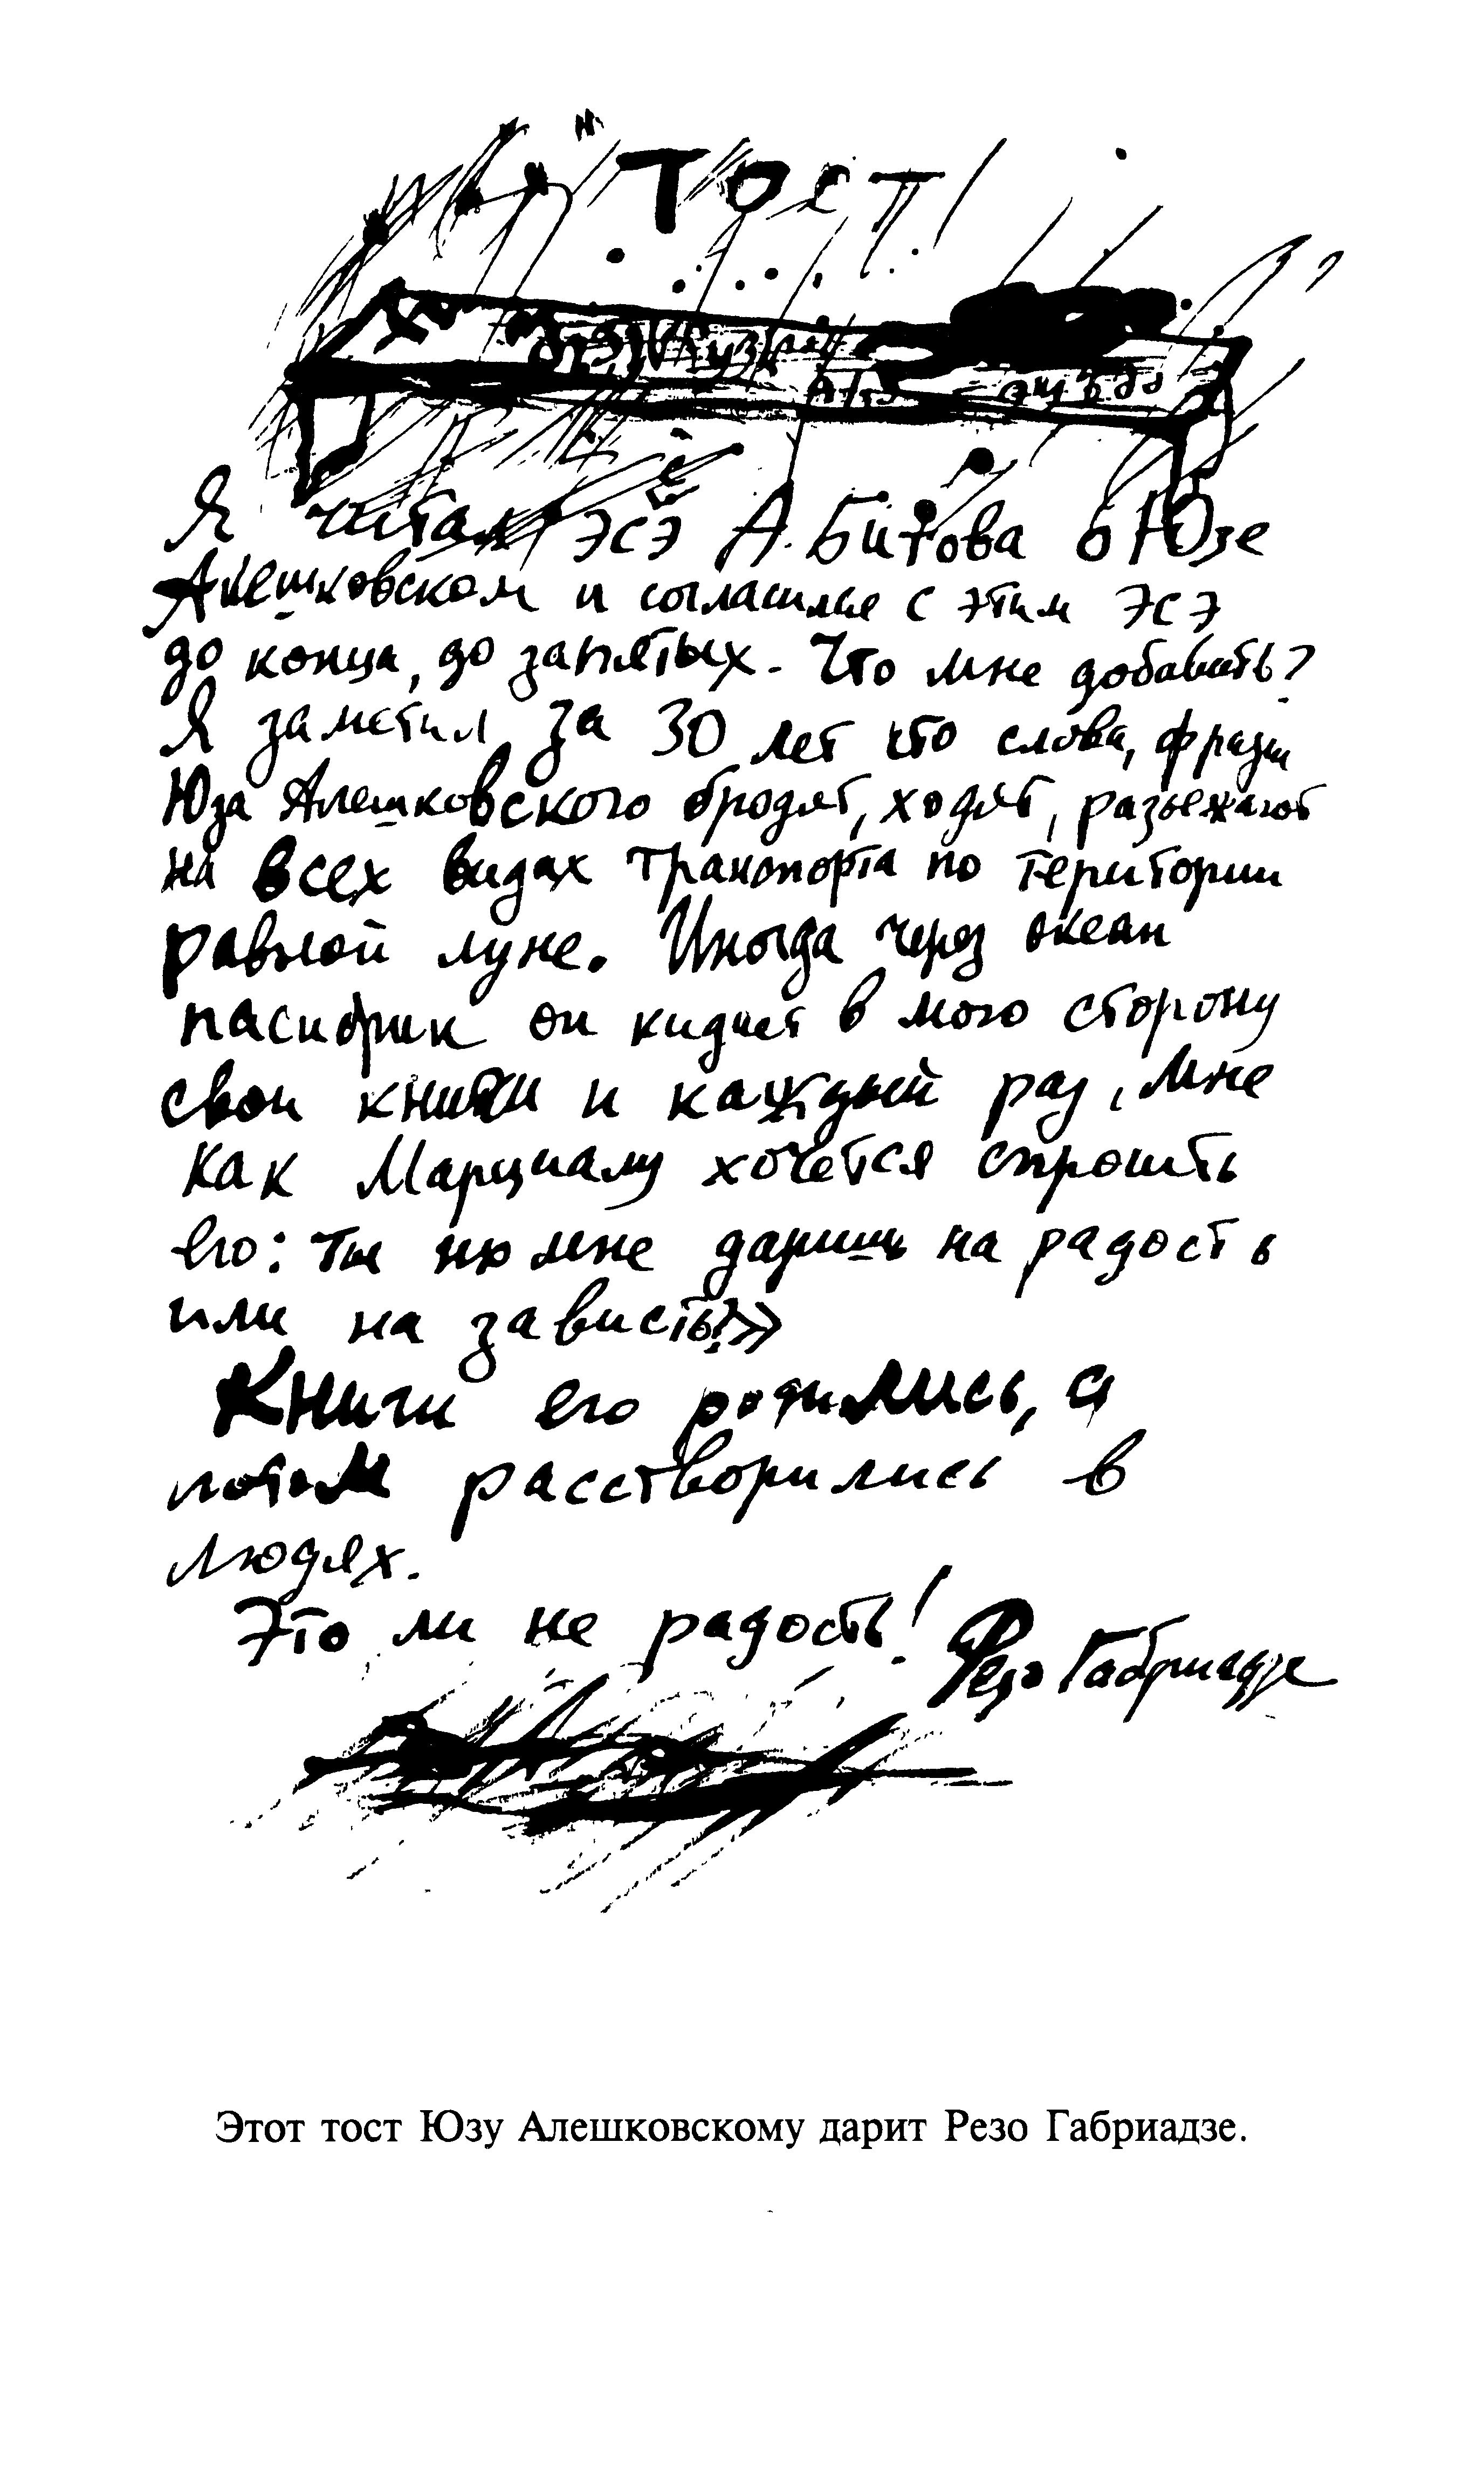 ТОСТ!
Я читал эсэ А. Битова о Юзе
Алешковском и согласился с этим эсэ
до конца, до запятых. Что мне добавить?
Я заметил за 30 лет что слова, фразы
Юза Алешковского бродят, ходят, разьежают
на всех видах транспорта по територии
равной луне. Иногда через океан
пасифик он кидает в мою сторону
свои книги и каждый раз, мне
как Марциалу хочется спросить
его: Ты их мне даришь на радость
или на зависть?»
Книги его родились, а
потом расстворились в
людях.
Это ли не радость!
Резо Габриадзе
Этот тост Юзу Алешковскому дарит Резо Габриадзе.